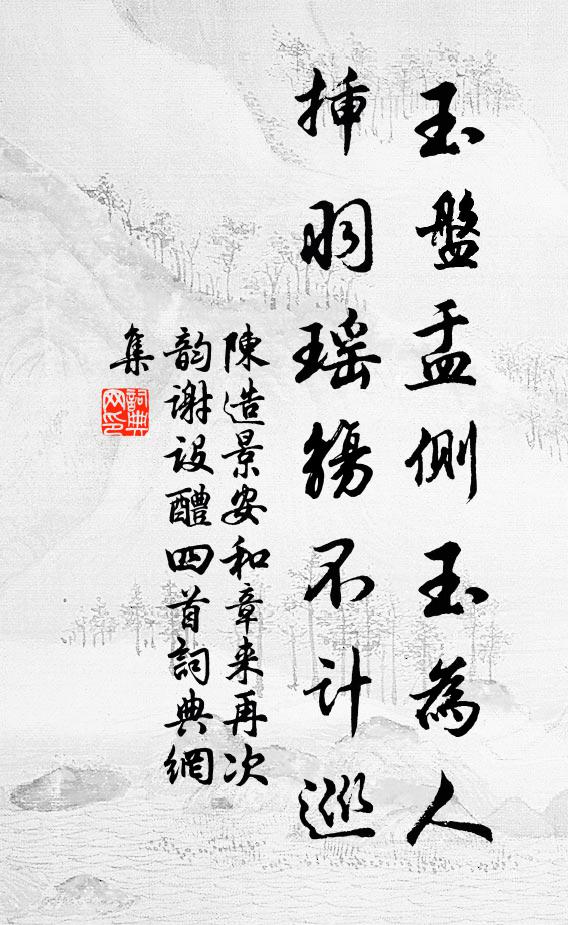 玉盤盂側玉為人
揷羽瑤觴不計巡
陳造景安和章来再次
韵謝設醴四首詞典網
集
詞典
网印